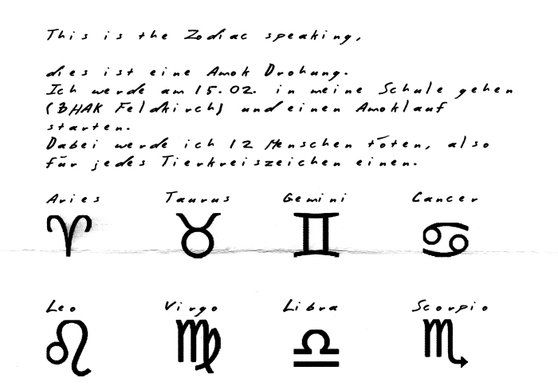 This is the Zodiac speaking,
dies ist eine Amok Drohung.
Ich werde am 15.02. in meine Schule gehen
(BHAK Feldkirch) und einen Amoklauf
starten.
Dabei werde ich 12 Menschen töten, also
für jedes Tierkreiszeichen einen.
Aries Taurus Gemini Cancer
Leo Virgo Libra Scorpio